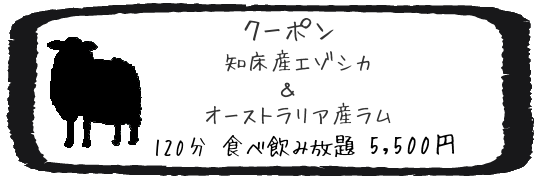 クーポン
知床産エゾシカ
&
オーストラリア産ラム
120分 食べ飲み放題 5,500円